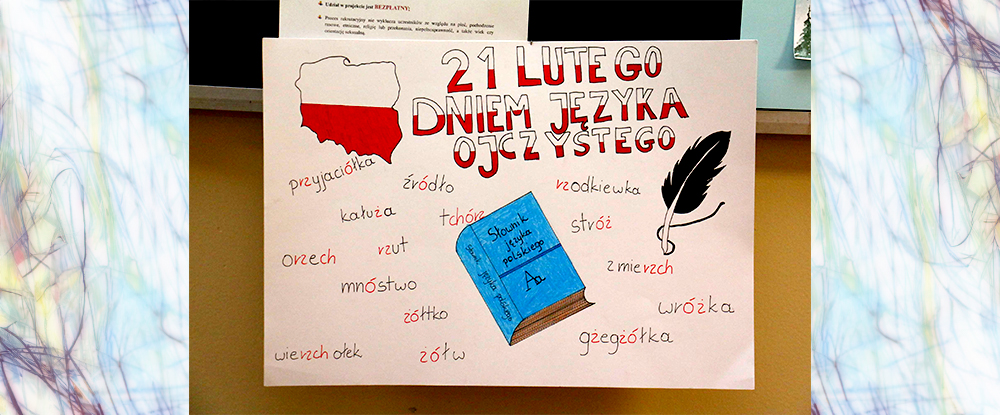 Udział w projekcie jest BEZPŁATNY;
Proces rekrutacyjny nie wyklucza uczestników ze względu na płeć, pochodzenie
rasowe, etniczne, religię lub przekonania, niepełnosprawność, a także wiek czy
orientację seksualną.
21 LUTEGO
DNIEM JĘZYKA
OJCZYSTEGO
przyjaciółka
źródło
rzodkiewka
kałuża
tchórz
stróż
orzech
rzut
zmierzch
mnóstwo
żółtko
wróżka
wierzchołek
żółw
gżegżółka
Słownik
języka
polskiego
Aa
Słownik języka polskiego